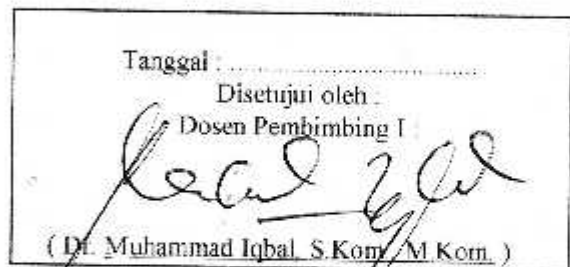 Tanggal : ........................................
Disetujui oleh :
Dosen Pembimbing I :
( Dr. Muhammad Iqbal, S.Kom., M.Kom. )